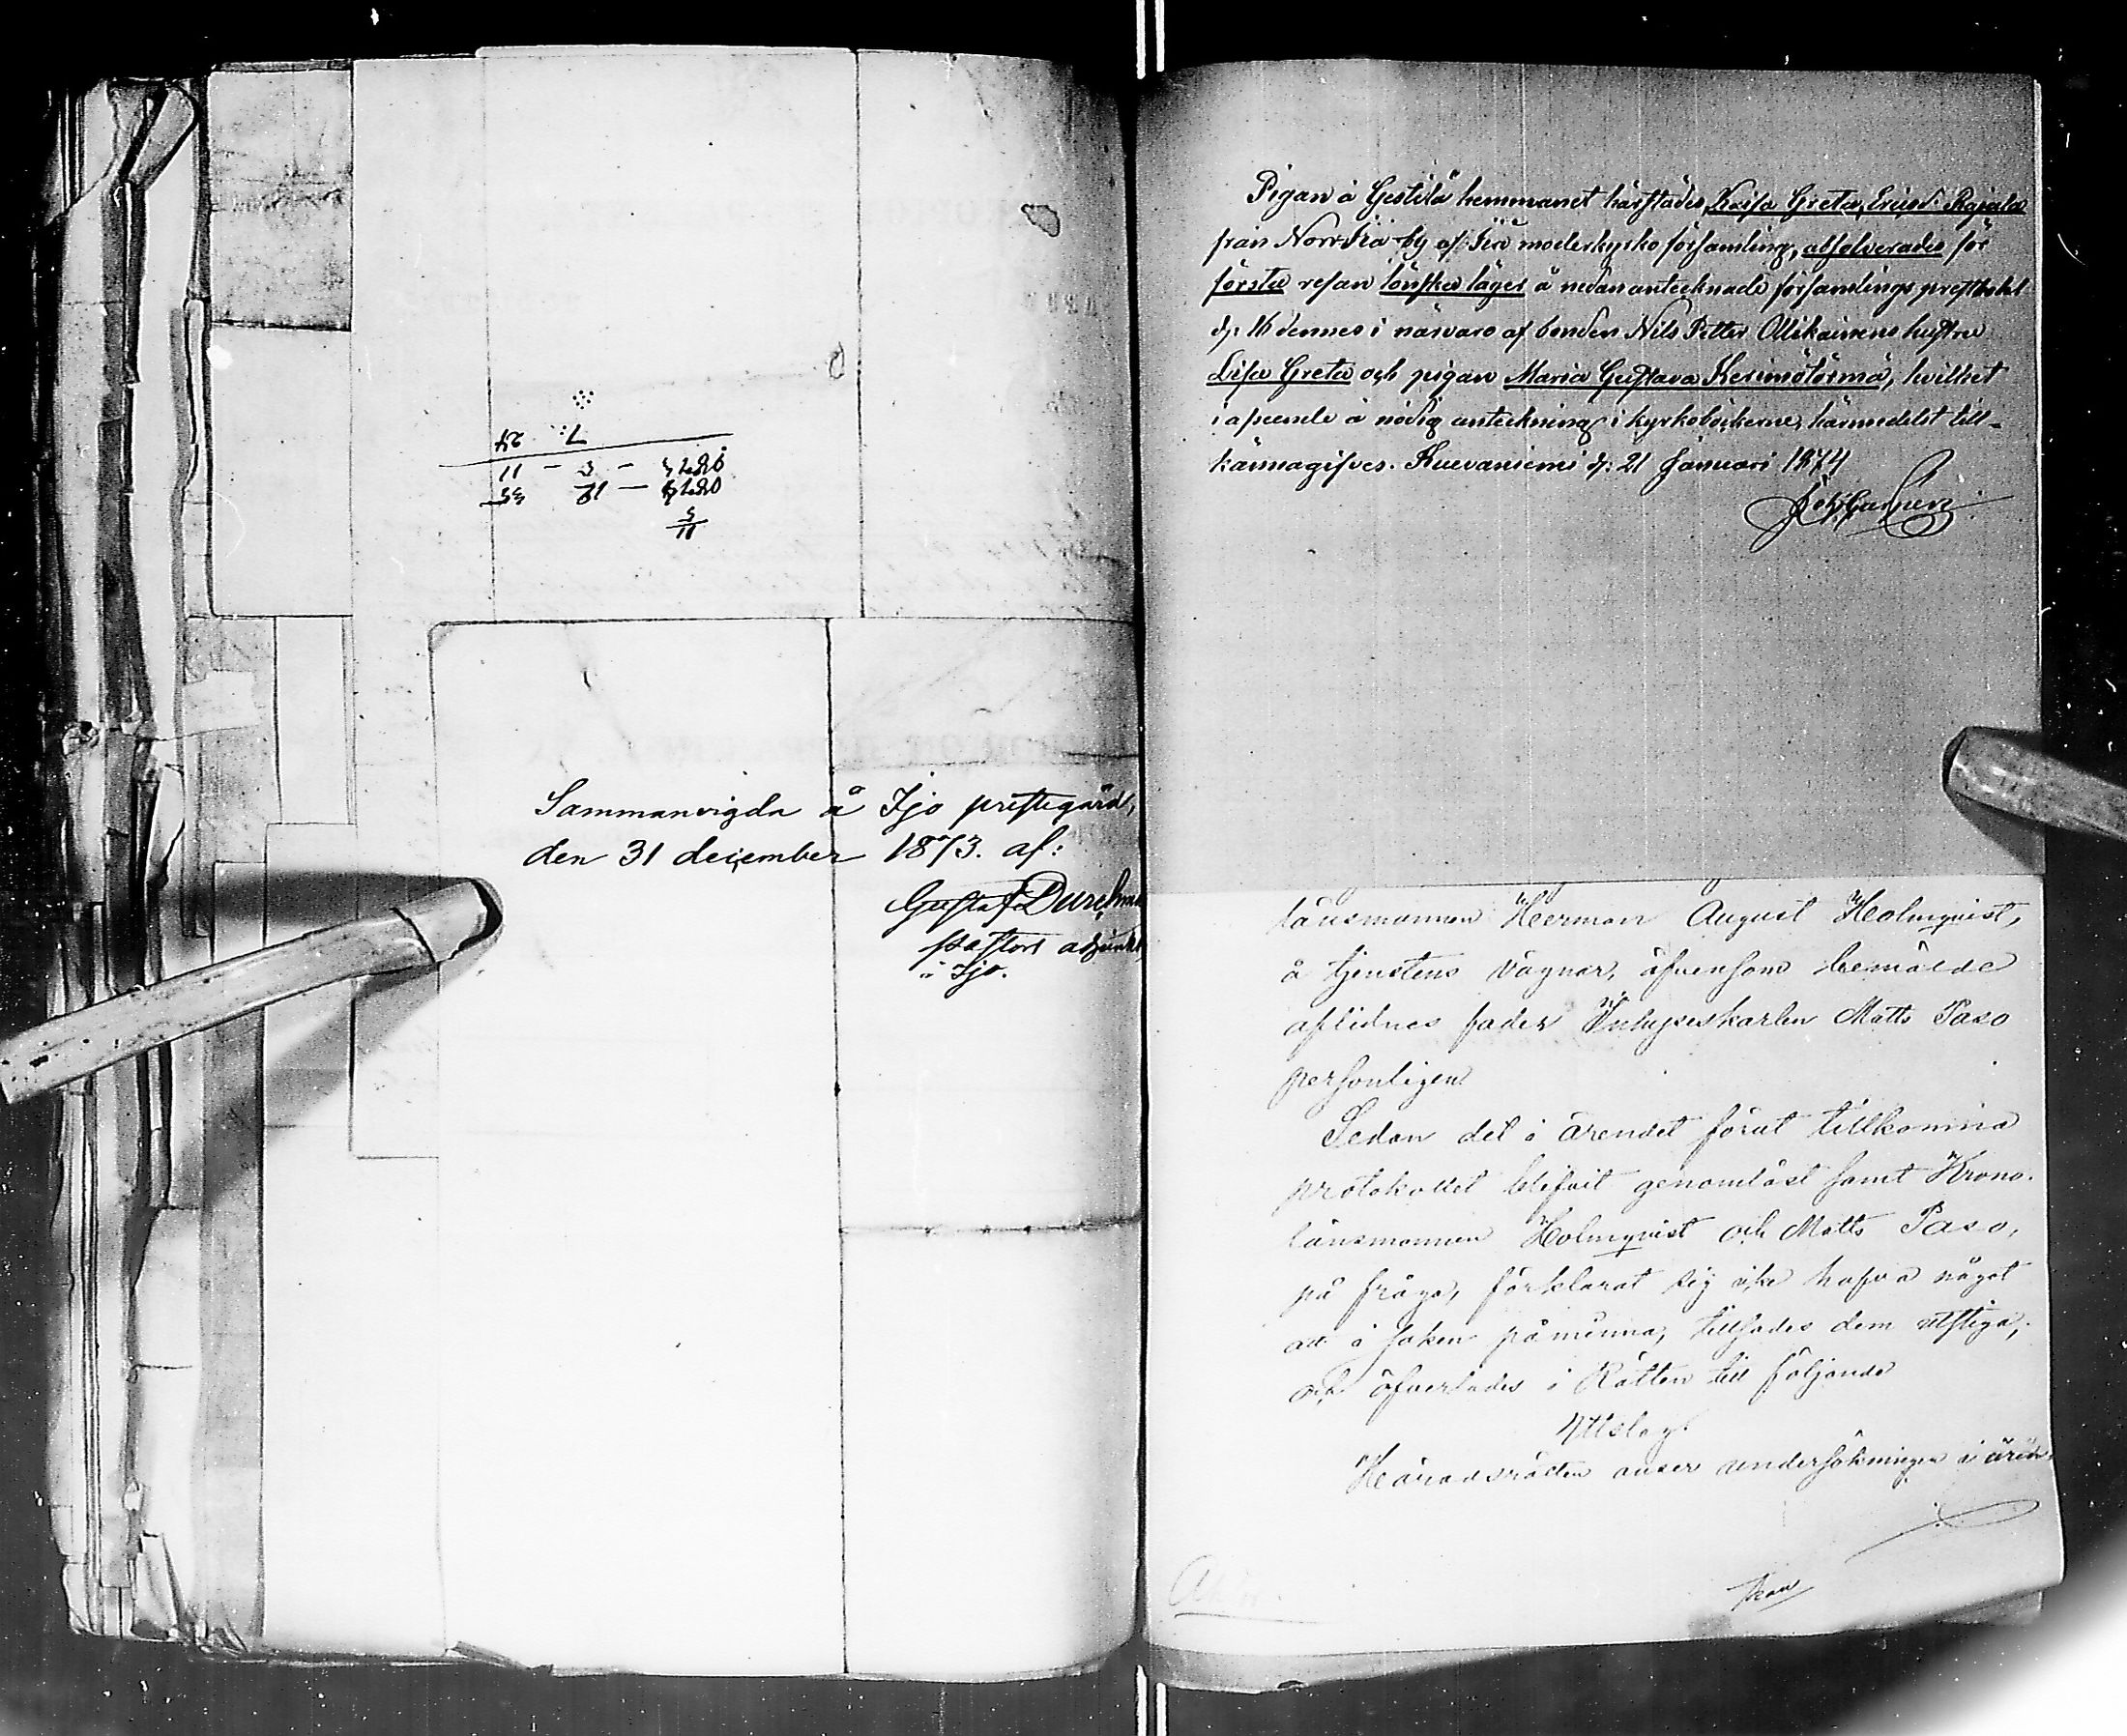 Sammanvigda å Ijo prestegård,
den 31 december 1873. af:
Gustaf
pastors adjunkt
i Ijo.
Pigan å Gestilä hemmanet härstädes, Kaisa Greta Ericsd: Rajala
från Norr Iia by af Iia moderkyrko församling, absolverades för
första resan lönska läger å nedanantecknade församlings prestbohl
d. 16 dennes i närvaro af bonden Nils Petter Ollikainens hustru
Lisa Greta och pigan Maria Gustava Kesimötörmä, hvilket
i afseende å nödig anteckning i kyrkoböckerne, härmedelst till-
kännagifves. Kuivaniemi d: 21 Januari 1874
länsmannen Herman August Holmqvist,
å tjenstens vägnar, äfvensom bemälde
aflidnes fader Inhyseskarlen Matts Paso
personligen
Sedan det i ärendet förut tillkomna
protokollet blifvit genomläst samt Krono-
länsmannen Holmqvist och Matts Paso,
på fråga, förklarat sig icke hafva något
att i saken påminna, tillsades dem utstiga,
och öfverlades i Rätten till följande
Utslag.
Häradsrätten anser undersökningen i